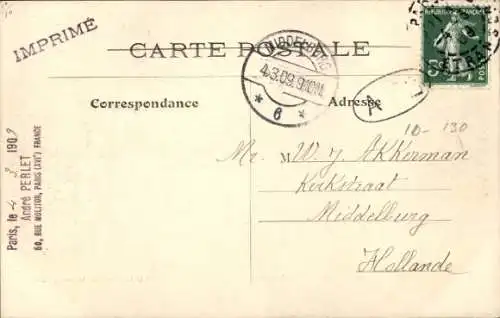 IMPRIMÉ
CARTE POSTALE
MIDDELBURG
4.3.09.9
6
RÉPUBLIQUE FRANÇAISE
POSTES
ETRANG
Correspondance
Adresse
A
10-130
Mr. M W. J. Akkerman
Kerkstraat
Middelburg
Hollande
Paris, le 4 3 1909
André PERLET
60, RUE MOLITOR, PARIS (XVIᵉ) FRANCE